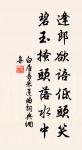 逢郎欲语低头笑
碧玉搔头落水中
白居易采莲曲词典网